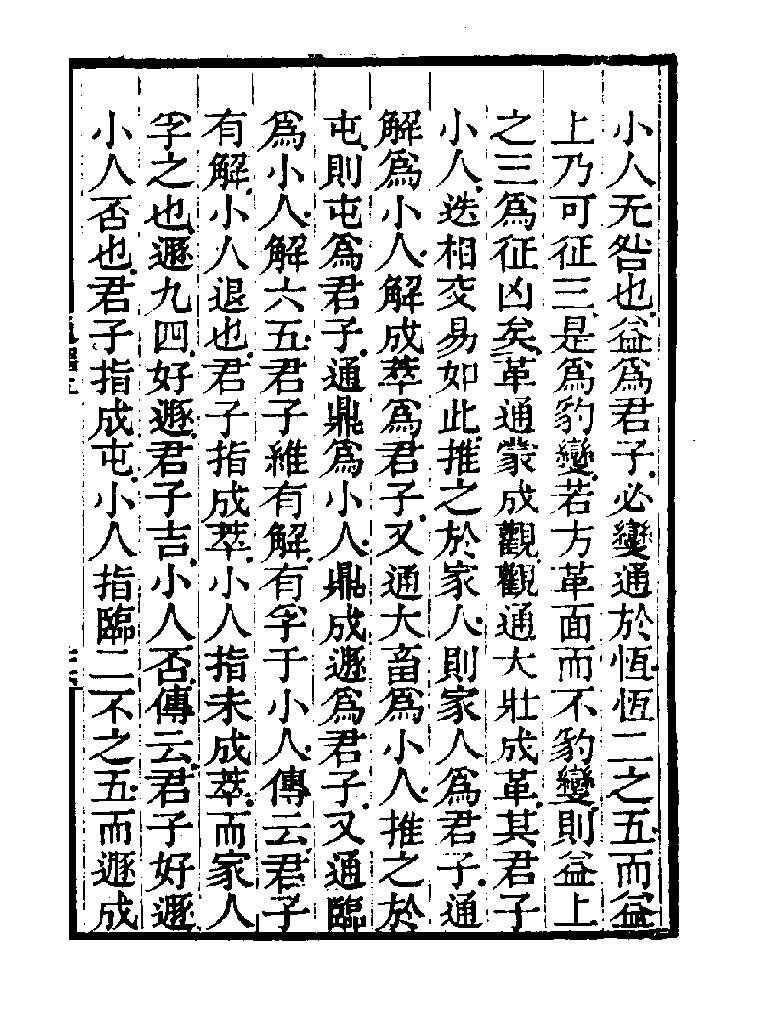 小人无咎也益爲君子必變通於恆恆二之五而益
上乃可征三是爲豹變若方革面而不豹變則益上
之三爲征凶矣革通蒙成觀觀通大壯成革其君子
小人迭相交易如此推之於家人則家人爲君子通
解爲小人解成萃爲君子又通大畜爲小人推之於
屯則屯爲君子通鼎爲小人鼎成遯爲君子又通臨
爲小人解六五君子維有解有孚于小人傳云君子
有解小人退也君子指成萃小人指未成萃而家人
孚之也遯九四好遯君子吉小人否傳云君子好遯
小人否也君子指成屯小人指臨二不之五而遯成